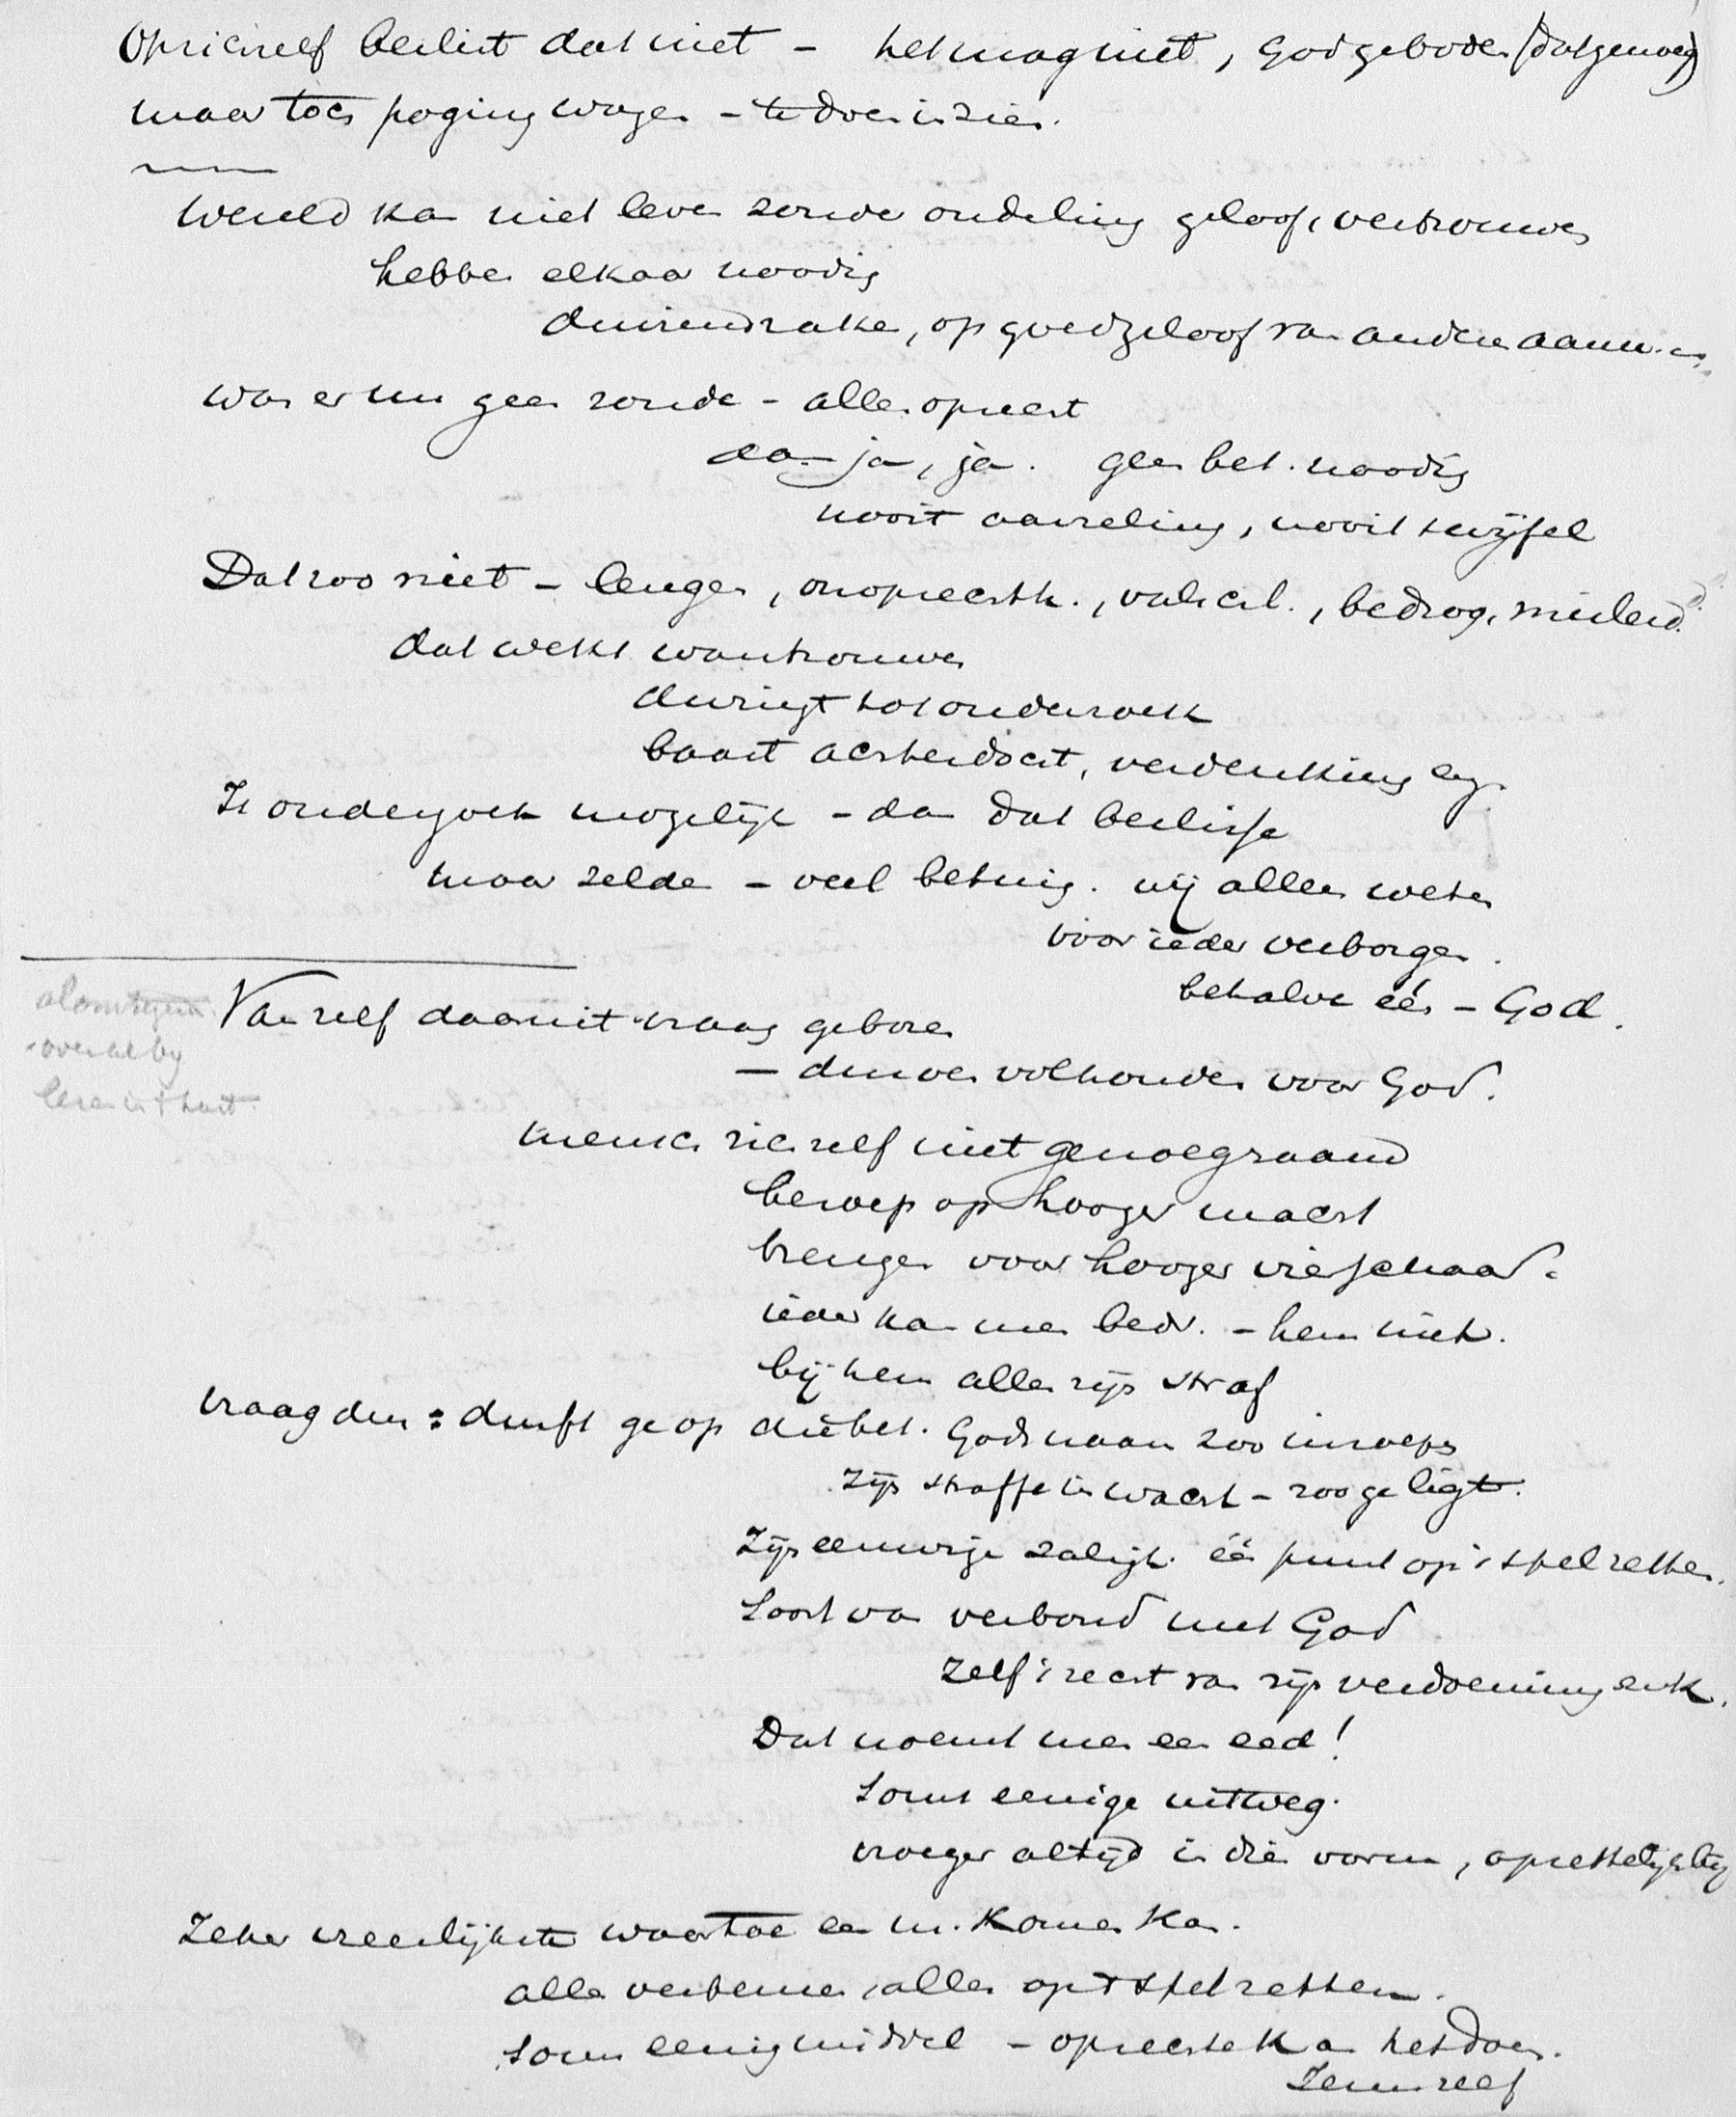 Op zichzelf beslist dat niet – het mag niet, God geboden (dat genoeg)
maar toch poging wagen – te doen inzien.
Wereld kan niet leven zonder onderling geloof, vertrouwen
hebben elkaar noodig
duizend zaken, op goed geloof van anderen aannemen
was er nu geen zonde – alles oprecht
dan ja, ja. geen bet. noodig
nooit aarzeling, nooit twijfel
Dat zoo niet – leugen, onoprechth., valschh., bedrog, misleid.
dat wekt wantrouwen
dwingt tot onderzoek
baart achterdocht, verdenking
Is onderzoek mogelijk – dan dat beslisse
maar zelden – veel betuig. wij alleen weten
voor ieder verborgen.
behalve één – God.
alomtegenw.
overal bij
lezen in 't hart.
Van zelf daaruit vraag geboren
– durven volhouden voor God.
mensch zich zelf niet genoegzaam
beroep op hooger macht
brengen voor hooger vierschaar.
ieder kan men bedr. – hem niet.
bij hem alleen zijn straf
vraag dus: durft ge op die bet. Gods naam zoo inroepen
Zijn straffe inwacht – zoo ge liegt.
Zijn eeuwige zaligh. één punt op 't spel zetten.
Soort van verbond met God
Zelf 't recht van zijn verdoeming erk.
Dat noemt men een eed!
Soms eenige uitweg.
vroeger altijd in dien vorm, opzettelijk
Zeker vreeselijkste waartoe een m. komen kan.
alles verbeuren, alles op 't spel zetten.
Soms eenig middel – oprechte kan het doen.
Jezus zelf